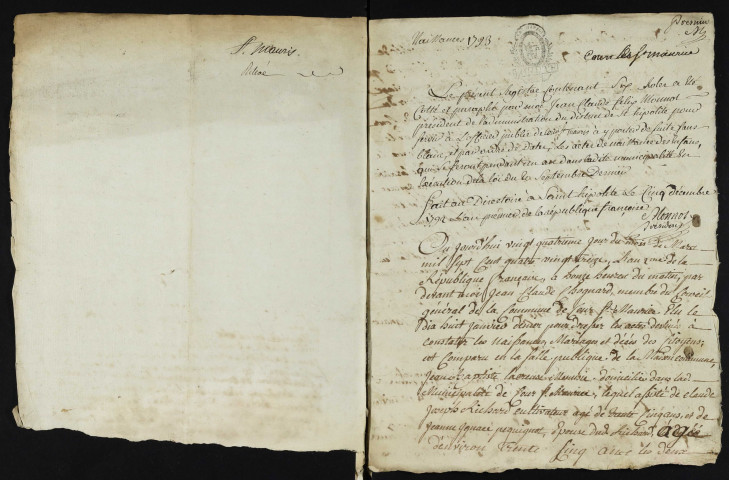 St Mauris
Naissances 1793
Premier
Cour les St maurice
Le présent Registre contenant Six Roles a été
Cotté et paraphé par moi Jean Claude felix Monnot
président de l'administration du district de St hipolite pour
servir à l'officier public de a y porter de suite sans
blanc, et par ordre de Date, les actes de naissances des enfans,
qui se feront pendant un an dans ladite municipalité en
Execution de la loi du 20 Septembre Dernier
fait au Directoire à Saint hipolite le Cinq décembre
1792 L'an premier de la république françoise Monnot
President
Du jourd'hui vingt quatrieme jour du mois de Mars
mil Sept Cent quatre vingt treize, L'an 2me de la
République française, à honze heures du matin, par
devant moi Jean Claude membre du Conseil
général de la Commune de Cour St Maurice Elu le
dix huit Janvier dernier pour dresser les actes destinés à
constater les Naissances, Mariages et décès des Citoyens,
est Comparu en la salle publique de la Maison commune,
Jean Baptiste domiciliée dans lad
Municipalité de Cour St Maurice, laquel assisté de Claude
Joseph Richard cultivateur agé de trente cinq ans, et de
Jeanne Ignace pequignot, épouse dud Richard, agée
d'environ trente Cinq ans les deux